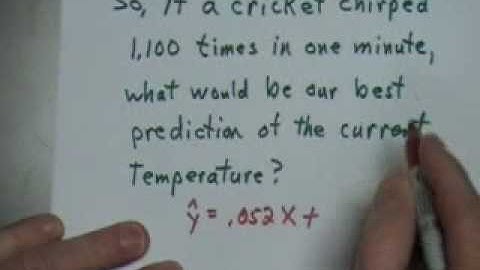 So, if a cricket chirped
1,100 times in one minute,
what would be our best
prediction of the current
temperature?
ŷ = .052X +